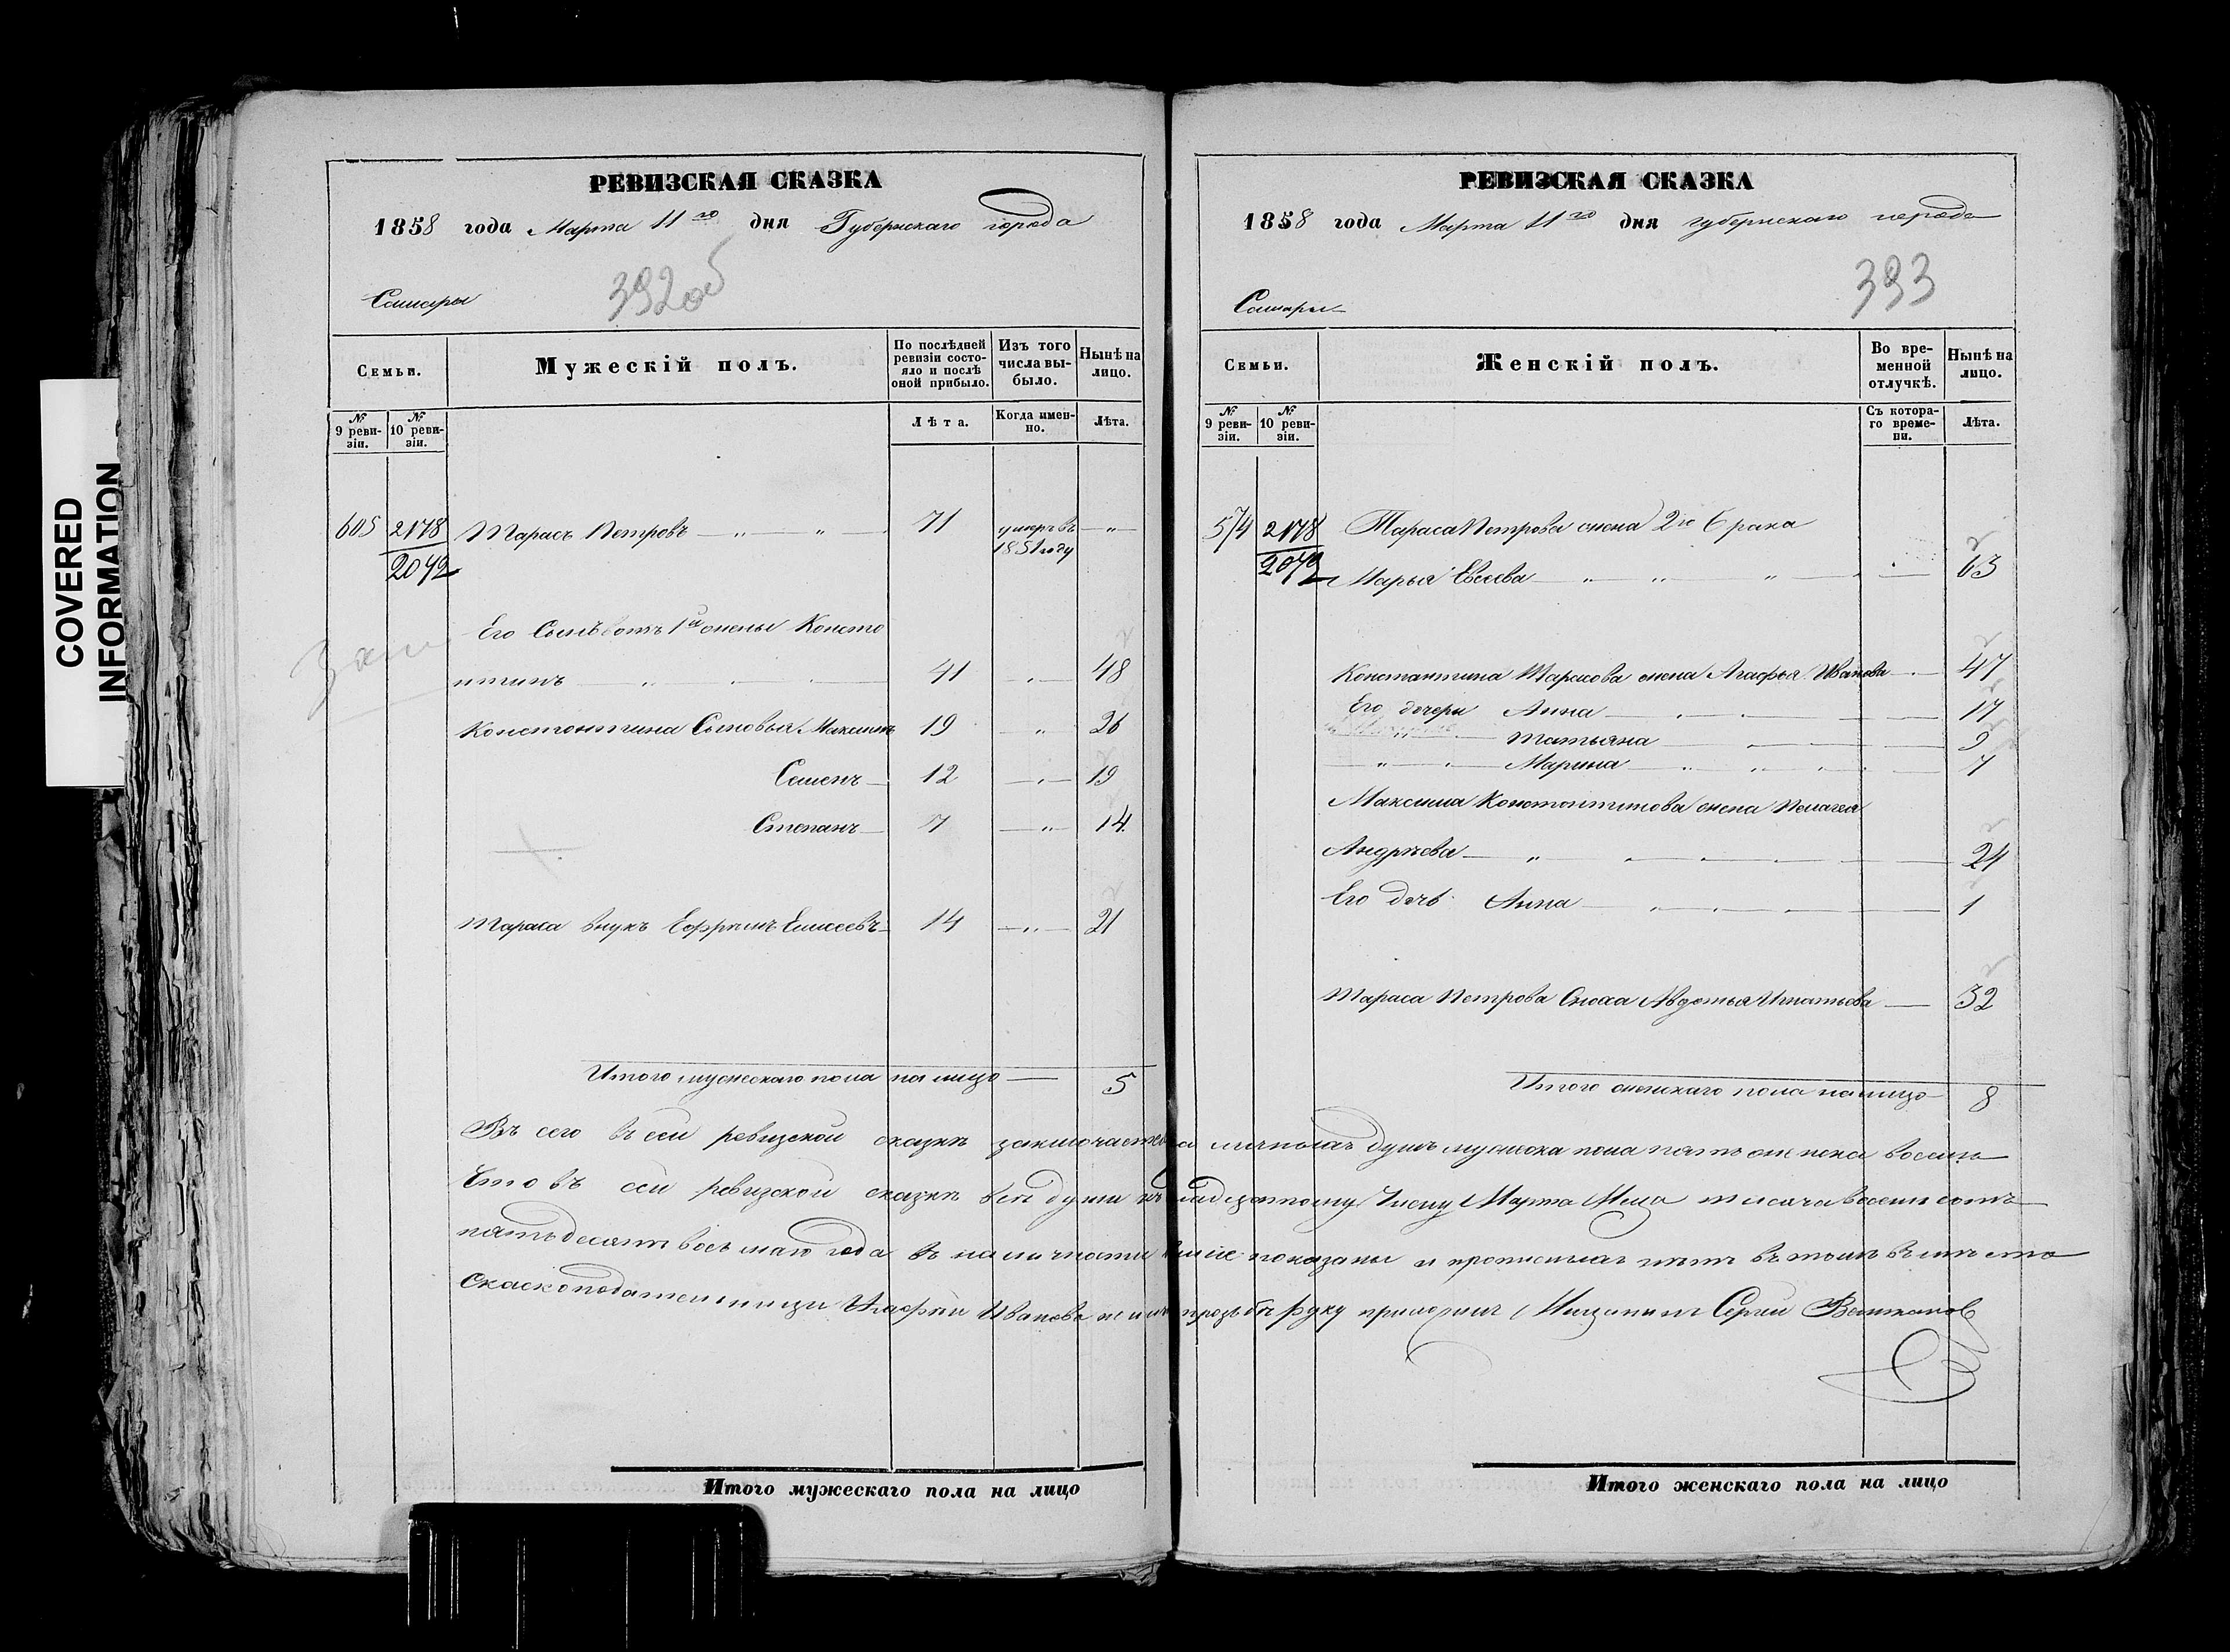 COVERED
INFORMATION
РЕВИЗСКАЯ СКАЗКА
1858 года Марта 11го дня Губернскаго города
Самары
392об
Семьи.
Мужескій полъ.
По послѣдней ревизіи состояло и послѣ оной прибыло.
Изъ того числа выбыло.
Нынѣ на лицо.
№ 9 ревизіи.
№ 10 ревизіи.
Лѣта.
Когда именно.
Лѣта.
605 2178 Тарасъ Петровъ — „ — „ — 71 умеръ въ 1851 году — „ —
2042
Его Сынъ отъ 1й жены Конста
нтинъ 41 48
Константина Сыновья Максимъ 19 „ 26
Семенъ 12 19
Степанъ 7 „ 14
Тараса внукъ Ефремъ Елисеевъ 14 „ 21
Итого мужескаго пола на лицо — 5
РЕВИЗСКАЯ СКАЗКА
1858 года Марта 11го дня губернскаго города
Самары
393
Семьи.
Женскій полъ.
Во временной отлучкѣ.
Нынѣ на лицо.
№ 9 ревизіи.
№ 10 ревизіи.
Съ котораго времени.
Лѣта.
574 2178 Тараса Петрова жена 2го брака
2042 Марья Евсева „ „ „ 63
Константина Тарасова жена Агафья Иванова 47
Его дочери Анна 17
„ Татьяна 9
„ Марина 7
Максима Константинова жена Пелагея
Андрѣева „ 24
Его дочь Анна 1
Тараса Петрова Сноха Авдотья Игнатьева — 32
Итого женскаго пола на лицо 8
сего въ сей ревизской сказкѣ заключается душъ мужеска пола пять женска восемь
Что въ сей ревизской сказкѣ всѣ души Числу Марта Меца тысяча восемь сотъ
пятьдесятъ восьмаго года въ наличности показаны и прописныхъ нѣтъ въ томъ
Сказкоподательницы Агафьи Ивановой прозьбѣ руку приложилъ Мещанинъ Сергей
Итого мужескаго пола на лицо
Итого женскаго пола на лицо